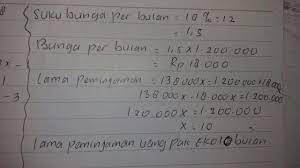 Suku bunga per bulan = 18 % : 12
= 1,5
Bunga per bulan = 1,5 x 1.200.000
= Rp 18 000
Lama peminjaman = 138 000 x = 1.200 000 + 18 000
138 000 x - 18.000 x = 1.200.000
120.000 x = 1.200.000
x = 10
Lama peminjaman yang pak Eko 10 bulan